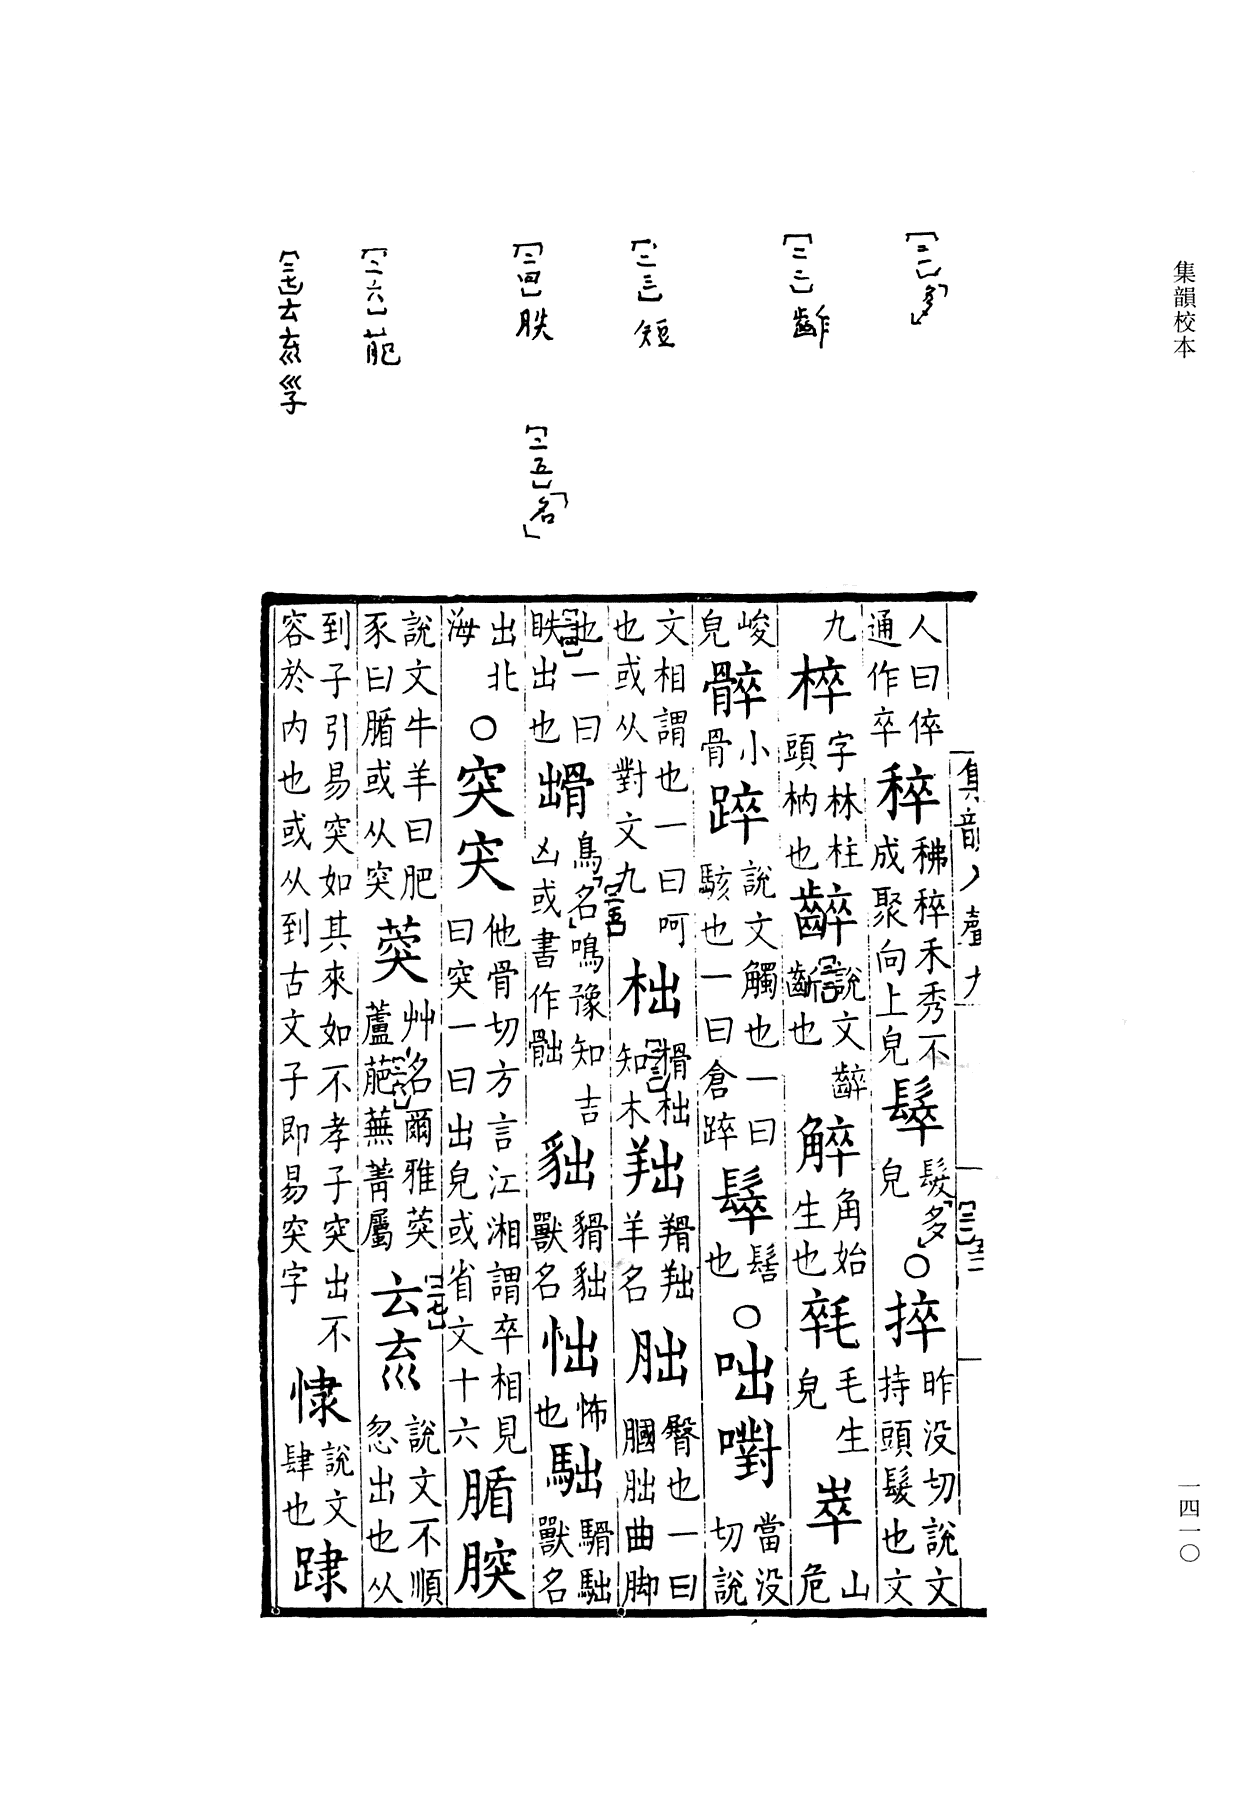 集韻校本
一四一〇
[二一]「多」
[二二]齚
[二三]短
[二四]胅
[二五]「名」
[二六]萉
[二七]𠫓㐬
集韻入聲九
人曰倅通作卒 稡 稡禾秀不成聚向上皃 髮「多」[二一]皃 〇捽 昨没切說文持頭髮也文
九 椊 字林柱頭枘也 䶝 說文[二二]䶝齗也 角始生也 毛生皃 崒 山危
峻皃 小骨 踤 說文觸也一曰駭也一曰倉踤 髻也 〇咄嚉 當没切說
文相謂也一曰呵也或从對文九 柮 榾柮[二三]知木 羊名 朏 臀也一曰䐃朏曲脚
也一曰[二四]眣出也 鳥「名」[二五]鳴豫知吉凶或書作 貀 獸名 怖也 獸名
出北海 〇突 他骨切方言江湘謂卒相見曰突一曰出皃或省文十六 腯腞
說文牛羊曰肥豕曰腯或从突 葖 艸名爾雅葖蘆萉[二六]蕪菁屬 𠫓㐬[二七] 說文不順忽出也从
到子引易突如其來如不孝子突出不容於内也或从到古文子即易突字 說文肆也